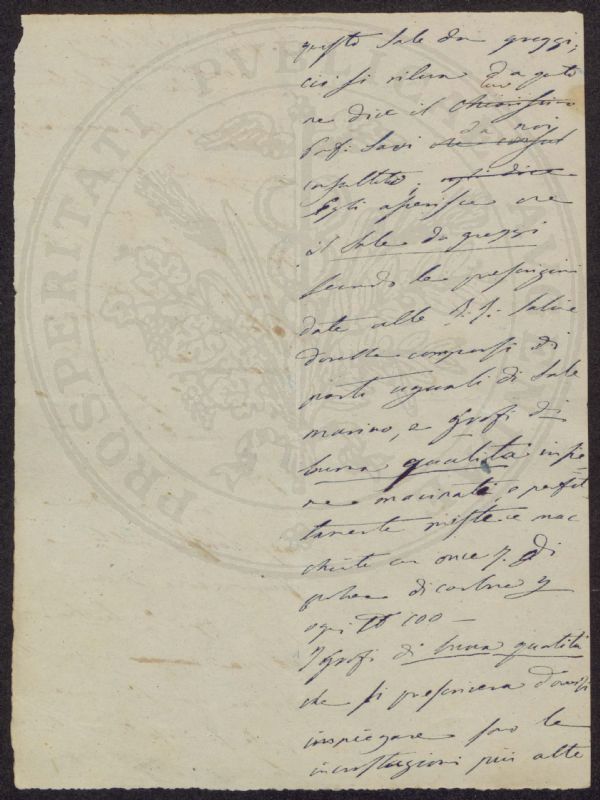 questo Sale da greggi,
ciò si rileva da quto
ne dice il chiarissimo
da noi
Prof: Savi che consul
consultato, egli dice
Egli asserisce che
il Sale da greggi
secondo le prescrizioni
date alle I. I. Saline
dovrebbe comporsi di
parti uguali di Sale
marino, e Grofi di
buona qualità insie
me macinati, e perfet
tamente misti e mac
chiati con once 7. di
polvere di carbone p
ogni lb 100 —
I Grofi di buona qualità
che si prescriveva doversi
impiegare sono le
incrostazioni più alte
PROSPERITATI PVBLICAE